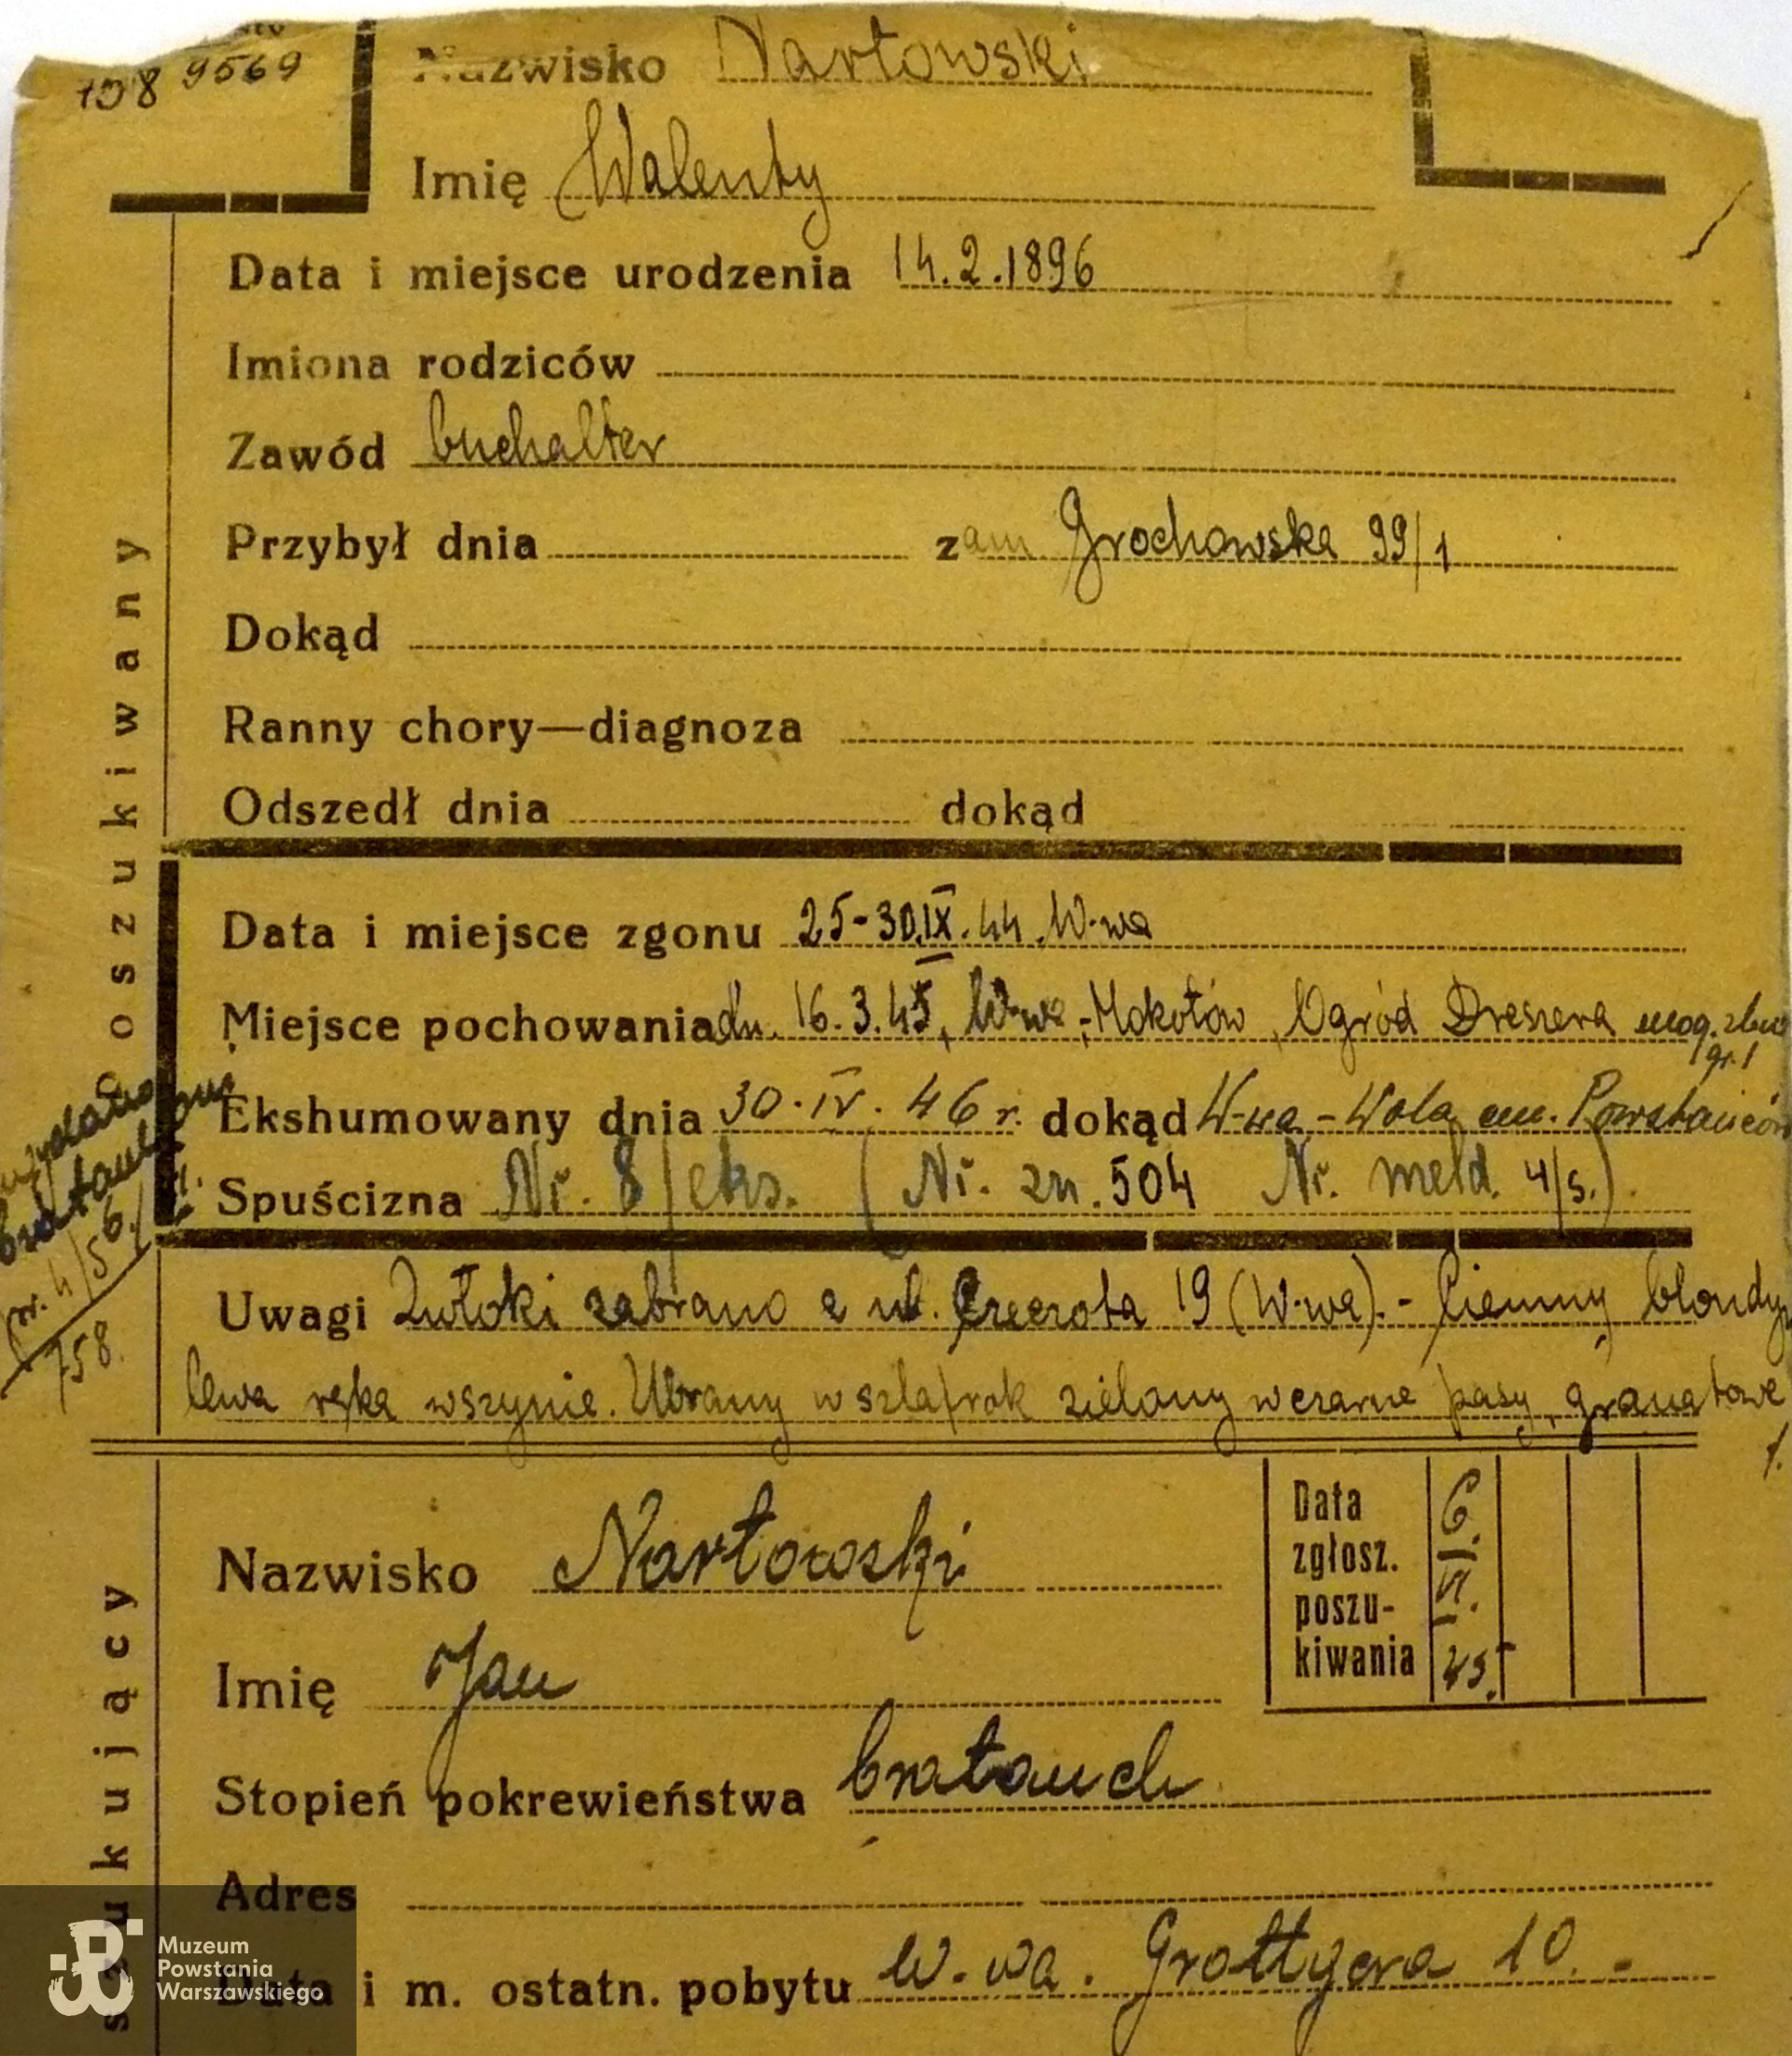 108 9569
Nazwisko Nartowski
Imię Walenty
Data i miejsce urodzenia 14.2.1896
Imiona rodziców
Zawód buchalter
Przybył dnia zam. Grochowska 99/1
Dokąd
Ranny chory—diagnoza
Odszedł dnia dokąd
poszukiwany
Data i miejsce zgonu 25-30.IX.44 W-wa
Miejsce pochowania dn. 16.3.45, W-wa-Mokotów, Ogród Dreszera mog. zbio
gr. 1
Ekshumowany dnia 30.IV.46 r. dokąd W-wa-Wola cm. Powstańców
Spuścizna Nr. 8/eks. (Nr. zn. 504 Nr. meld. 4/s.)
wydano
6/VI.
758.
Uwagi Zwłoki zabrano z ul. Czeczota 19 (W-wa).- Ciemny blondyn
lewa ręka w szynie. Ubrany w szlafrok zielony w czarne pasy, granatowe
szukujący
Nazwisko Nartowski
Imię Jan
Data zgłosz. poszukiwania 6.VI.45.
Stopień pokrewieństwa bratanek
Adres
Data i m. ostatn. pobytu W-wa. Grottgera 10.-
Muzeum
Powstania
Warszawskiego